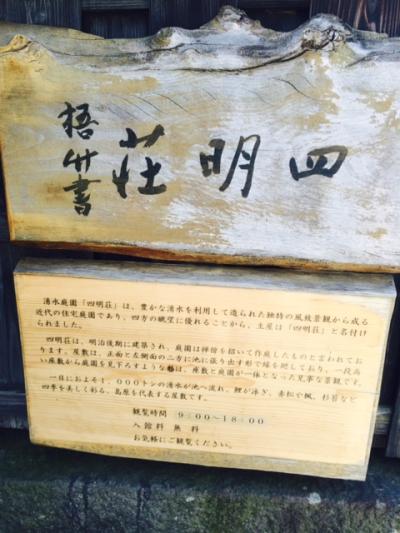 四明荘
梧竹書
湧水庭園「四明荘」は、豊かな湧水を利用して造られた独特の風致景観から成る
近代の住宅庭園であり、四方の眺望に優れることから、主屋は「四明荘」と名付け
られました。
四明荘は、明治後期に建築され、庭園は禅僧を招いて作庭したものと言われてお
ります。座敷は、正面と左側面の二方に池に張り出す形で縁を廻しており、一段高
い座敷から庭園を見下ろすような形は、座敷と庭園が一体となった見事な景観です。
一日におよそ1,000トンの湧水が池へ流れ、鯉が泳ぎ、赤松や楓、杉苔など
四季を美しく彩る、島原を代表する屋敷です。
観覧時間 9:00～18:00
入館料 無料
お気軽にご観覧ください。